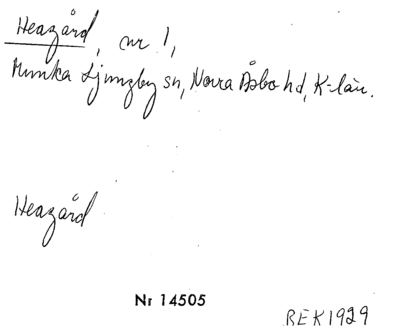 Heagård, nr 1,
Munka Ljungby sn, Norra Åsbo hd, K-län.
Heagård
Nr 14505
REK1929